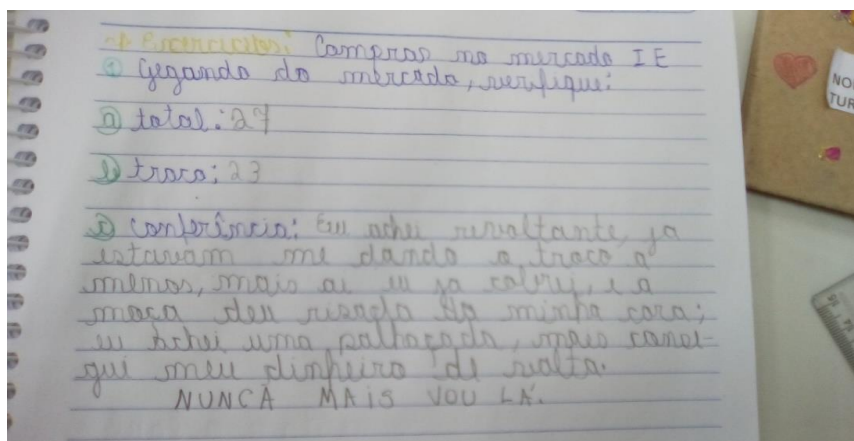 → Exercícios: Compras no mercado I E
① Gegando do mercado, verifique:
a) total: 27
b) troco: 23
c) conferência: Eu achei revoltante, ja
estavam me dando o troco a
menos, mais ai eu ja cobrei, e a
moça deu risada da minha cara;
eu achei uma palhaçada, mais conse-
gui meu dinheiro de volta.
NUNCA MAIS VOU LÁ.
NO
TUR